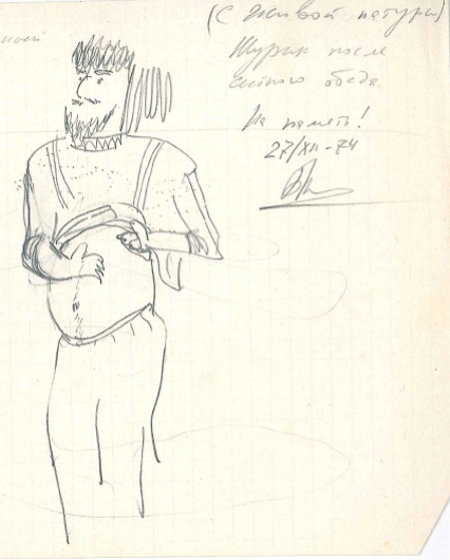 (С живой натуры)
Шурик после
сытного обеда.
На память!
27/XII-74